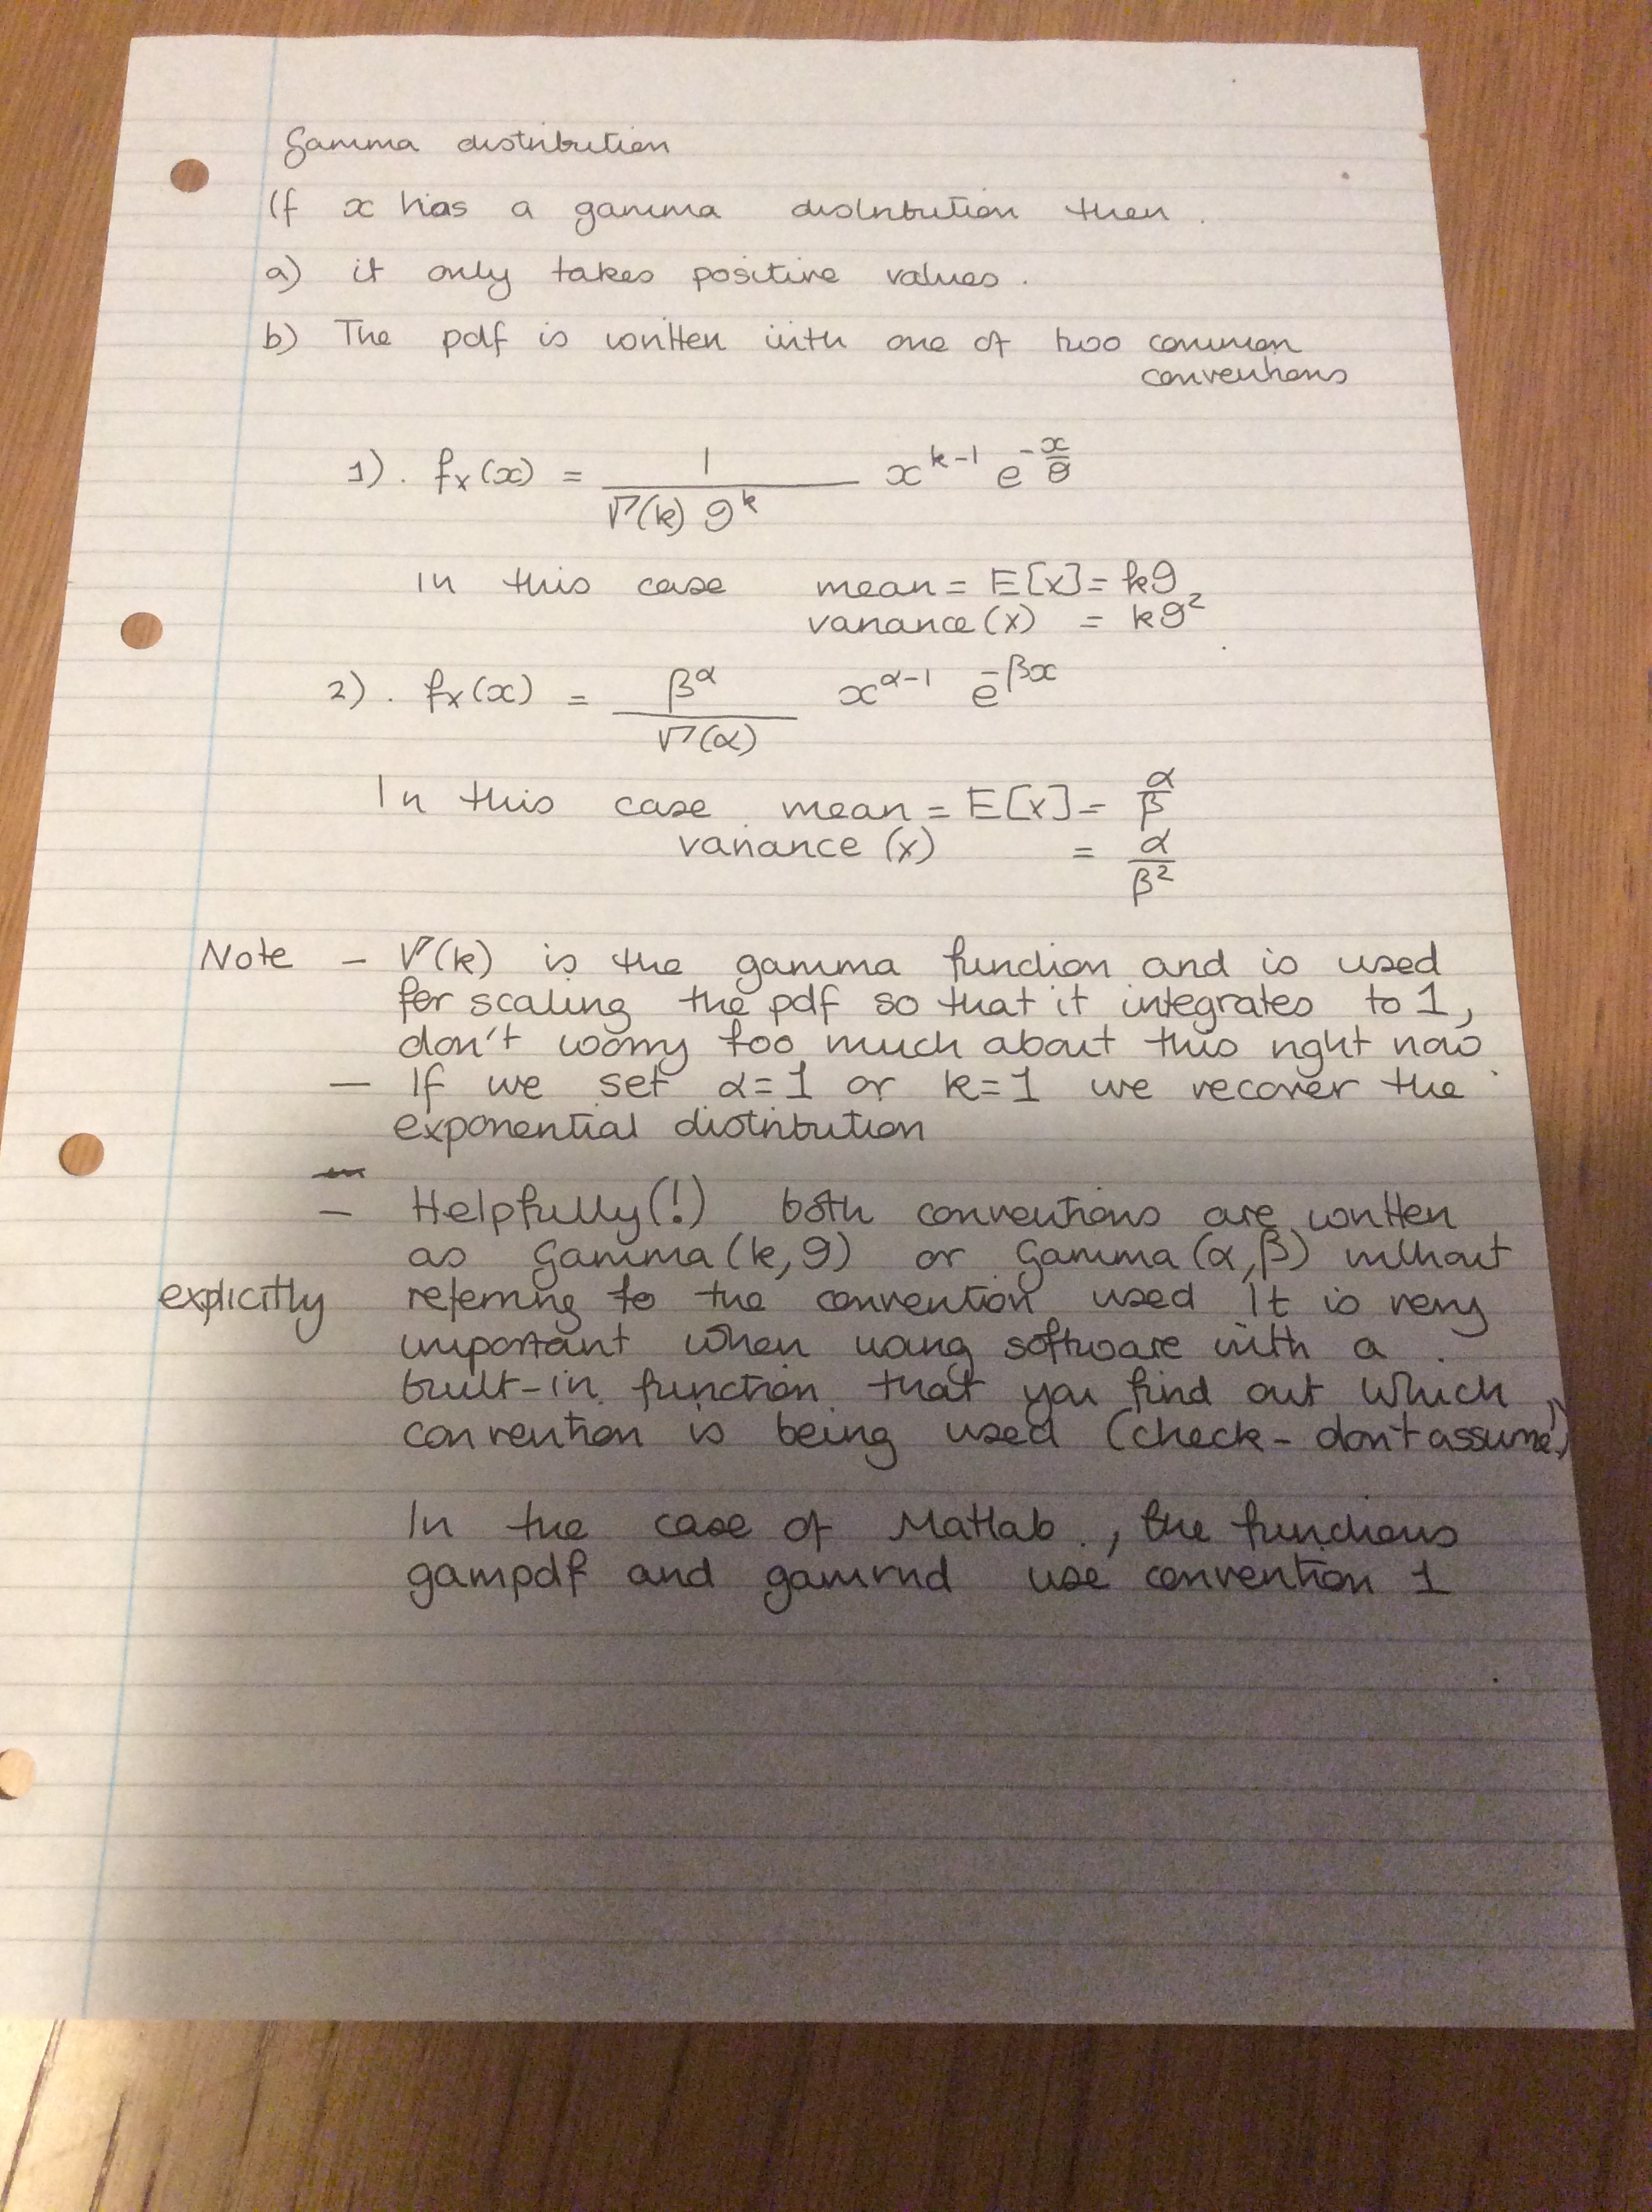 Gamma distribution
If x has a gamma distribution then.
a) it only takes positive values.
b) The pdf is written with one of two common
conventions
1). fₓ(x) = 1/(Γ(k) θ^k) x^(k-1) e^(-x/θ)
In this case mean = E[X] = kθ
variance(X) = kθ²
2). fₓ(x) = β^α/Γ(α) x^(α-1) e^(-βx)
In this case mean = E[X] = α/β
variance (X) = α/β²
Note – Γ(k) is the gamma function and is used
for scaling the pdf so that it integrates to 1,
don't worry too much about this right now
– If we set α=1 or k=1 we recover the
exponential distribution
– Helpfully(!) both conventions are written
as Gamma(k,θ) or Gamma(α,β) without
explicitly referring to the convention used It is very
important when using software with a
built-in function that you find out which
convention is being used (check - don't assume!)
In the case of Matlab, the functions
gampdf and gamrnd use convention 1